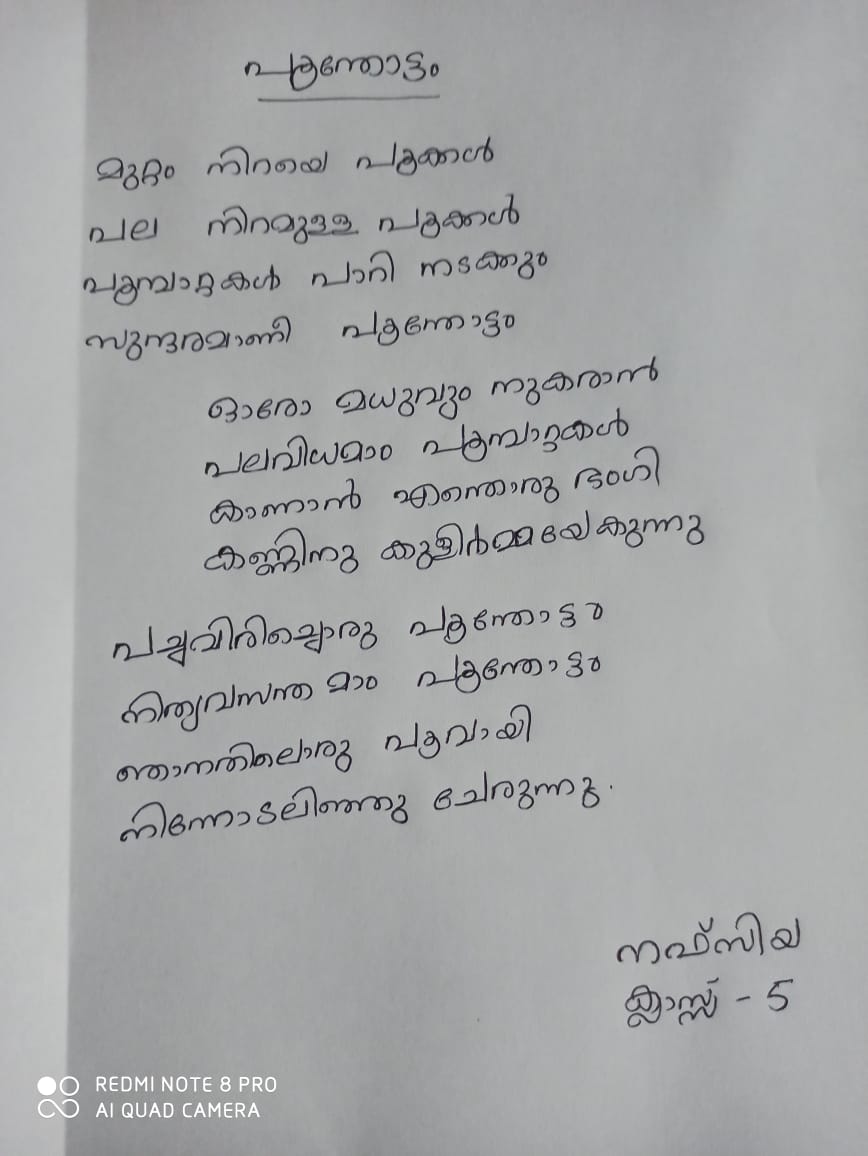 പൂന്തോട്ടം
മുറ്റം നിറയെ പൂക്കൾ
പല നിറമുള്ള പൂക്കൾ
പൂമ്പാറ്റകൾ പാറി നടക്കും
സുന്ദരമാണീ പൂന്തോട്ടം
ഓരോ മധുവും നുകരാൻ
പലവിധമാം പൂമ്പാറ്റകൾ
കാണാൻ എന്തൊരു ഭംഗി
കണ്ണിനു കുളിർമ്മയേകുന്നു
പച്ചവിരിച്ചൊരു പൂന്തോട്ടം
നിത്യവസന്തമാം പൂന്തോട്ടം
ഞാനതിലൊരു പൂവായി
നിന്നോടലിഞ്ഞു ചേരുന്നു.
നഫ്സിയ
ക്ലാസ്സ് - 5
REDMI NOTE 8 PRO
AI QUAD CAMERA